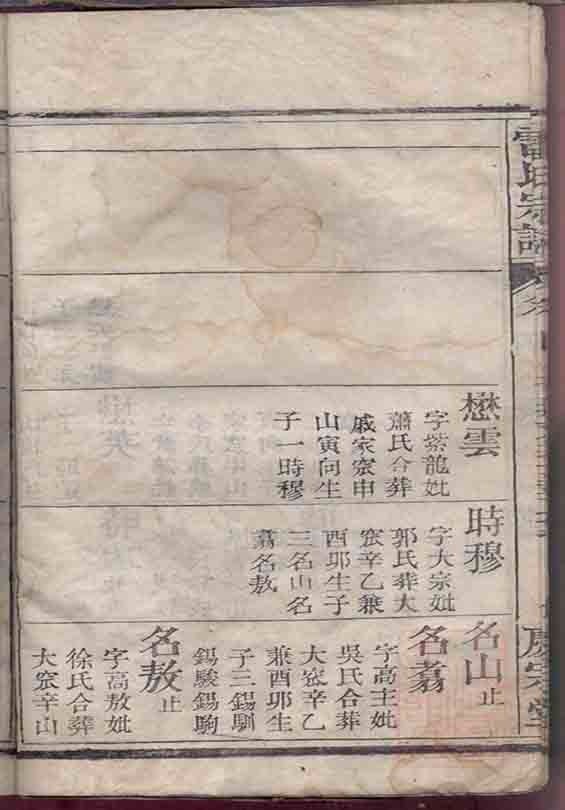 雷氏宗譜
懋雲
字紫龍妣
蕭氏合葬
戚家窊申
山寅向生
子一時穆
時穆
字大宗妣
郭氏葬大
窊辛乙兼
酉卯生子
三名山名
翥名敖
名山止
名翥
字高主妣
吳氏合葬
大窊辛乙
兼酉卯生
子三錫馴
錫駿錫駒
名敖止
字高敖妣
徐氏合葬
大窊辛山